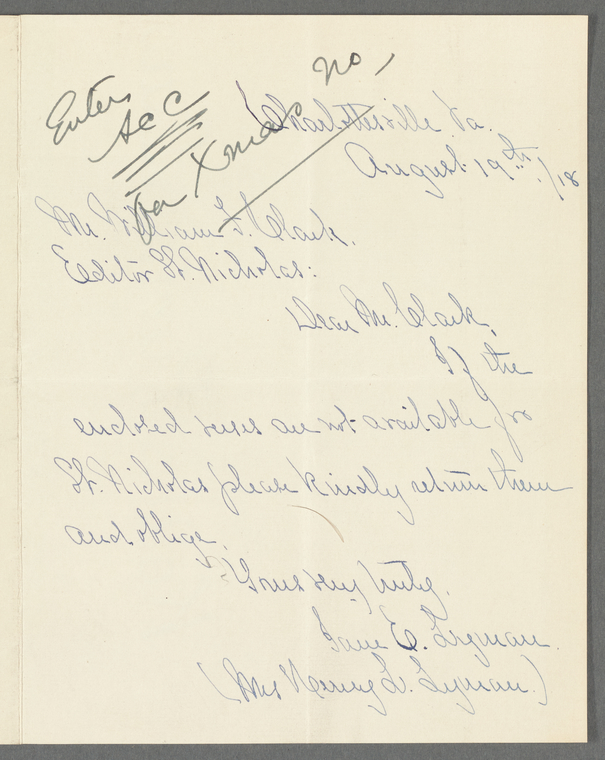 Enter
Acc
For Xmas no,
Charlottesville Va.
August 19th/18
Mr. William F. Clark.
Editor St. Nicholas:
Dear Mr. Clark,
If the
enclosed verses are not available for
St. Nicholas please kindly return them
and oblige,
Yours very truly,
Jane E. Lyman.
(Mrs Henry L. Lyman.)